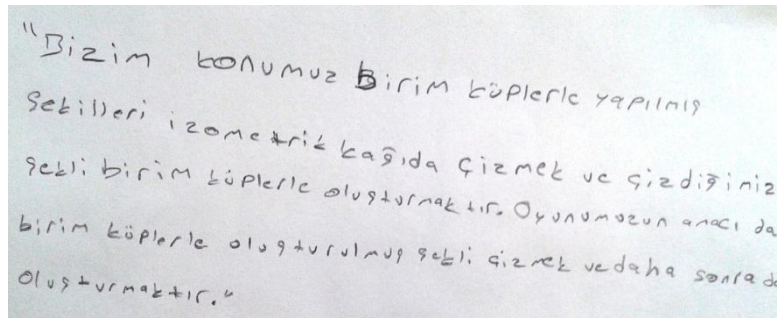 "Bizim konumuz Birim küplerle yapılmış
şekilleri izometrik kağıda çizmek ve çizdiğimiz
şekli birim küplerle oluşturmaktır. Oyunumuzun amacı da
birim küplerle oluşturulmuş şekli çizmek ve daha sonra da
oluşturmaktır."